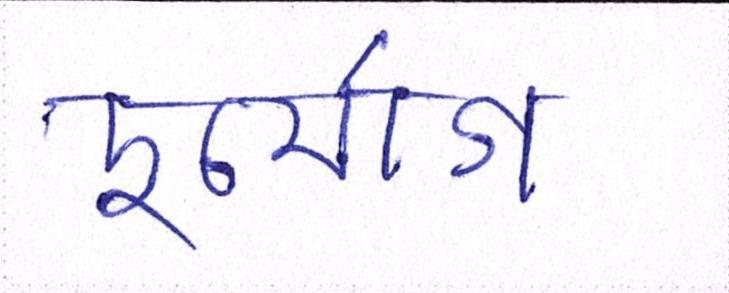 দুর্যোগ